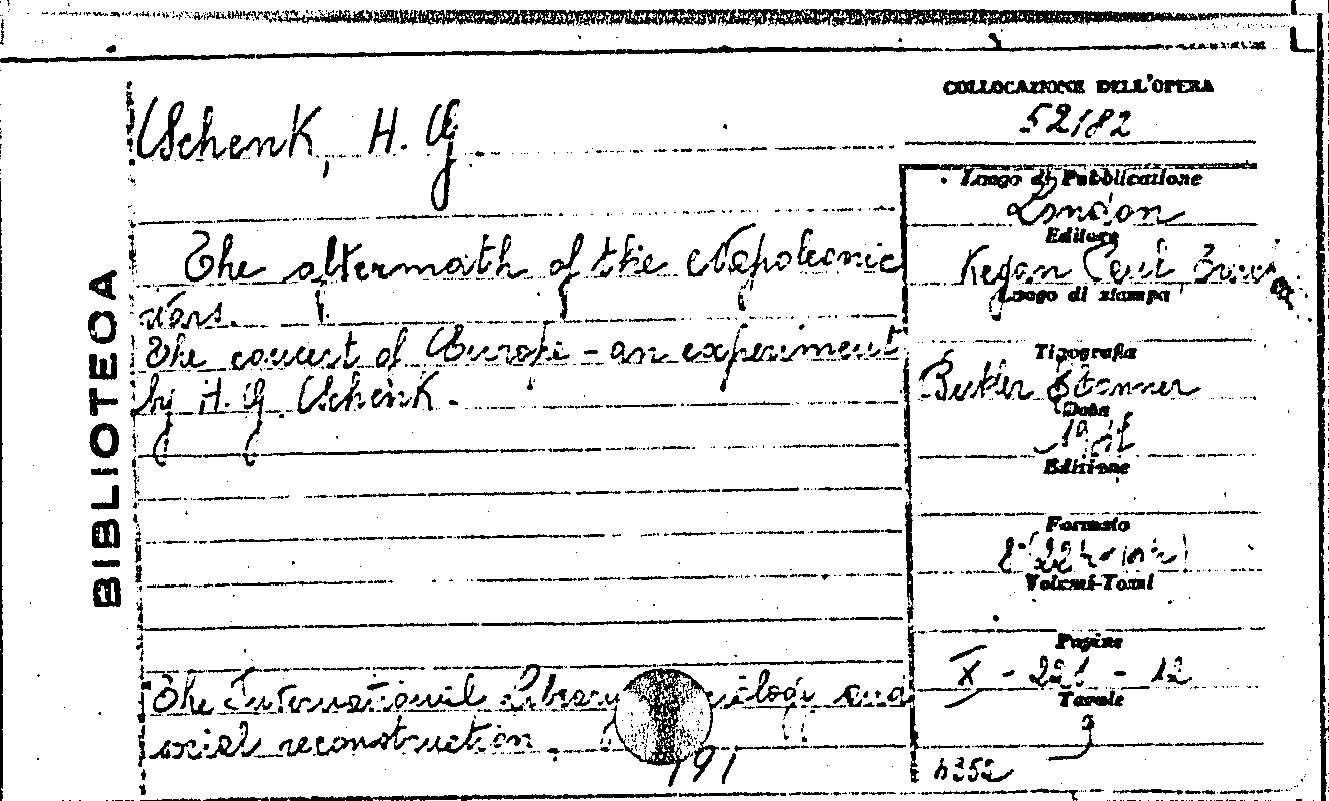 COLLOCAZIONE DELL'OPERA
52182
Schenk, H. G.
Luogo di Pubblicazione
London
Editore
The aftermath of the Napoleonic
Kegan Paul
Luogo di stampa
wars.
The concert of Europe - an experiment
Tipografia
by H. G. Schenk.
Butler
Data
Edizione
BIBLIOTECA
Formato
Volumi-Tomi
Pagine
X - 221 - 12
The International Library and
Tavole
social reconstruction.
191